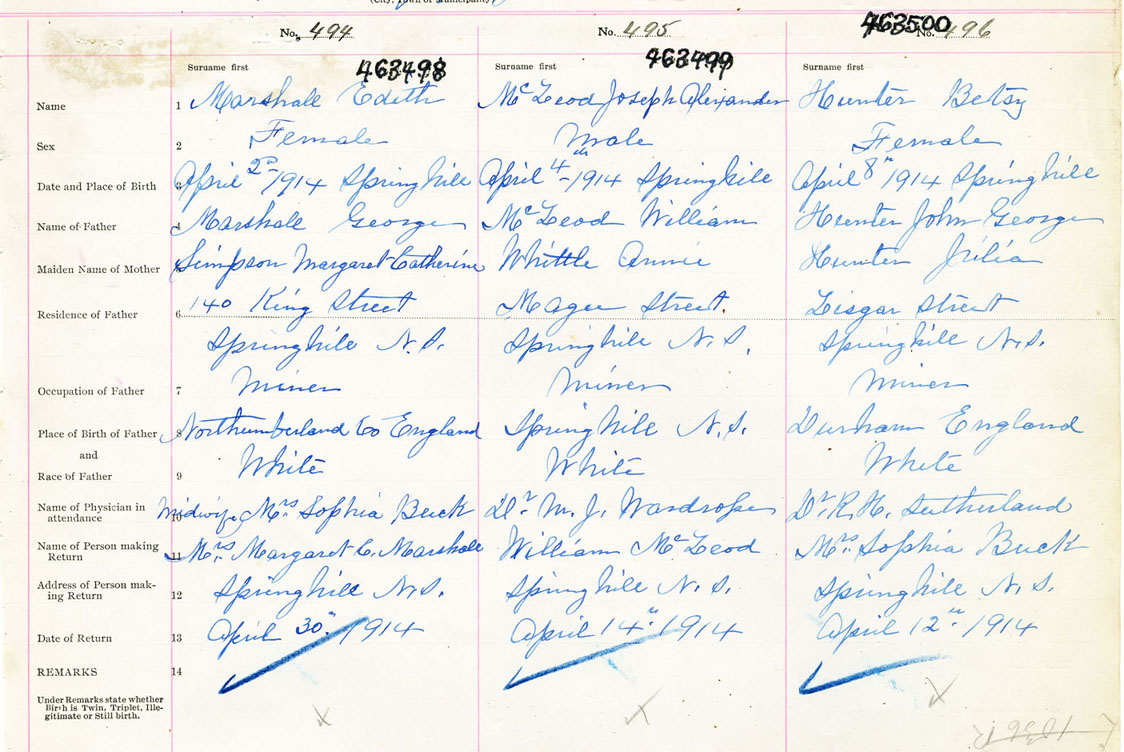 (City, Town or Municipality)
No. 494 No. 495 No. 496
463498 463499 463500
Surname first Surname first Surname first
Name 1 Marshall Edith McLeod Joseph Alexander Hunter Betsy
Sex 2 Female Male Female
Date and Place of Birth 3 April 2nd 1914 Springhill April 4th 1914 Springhill April 8th 1914 Springhill
Name of Father 4 Marshall George McLeod William Hunter John George
Maiden Name of Mother Simpson Margaret Catherine Whittle Annie Hunter Julia
Residence of Father 6 140 King Street Magee Street. Lisgar Street
Springhill N.S. Springhill N.S. Springhill N.S.
Occupation of Father 7 Miner Miner Miner
Place of Birth of Father 8 Northumberland Co England Springhill N.S. Durham England
and
Race of Father 9 White White White
Name of Physician in
attendance 10 Midwife Mrs Sophia Buck Dr M. J. Wardrope Dr R. H. Sutherland
Name of Person making
Return 11 Mrs. Margaret C. Marshall William McLeod Mrs. Sophia Buck
Address of Person mak-
ing Return 12 Springhill N.S. Springhill N.S. Springhill N.S.
Date of Return 13 April 30th 1914 April 14th 1914 April 12th 1914
REMARKS 14
Under Remarks state whether
Birth is Twin, Triplet, Ille-
gitimate or Still birth.